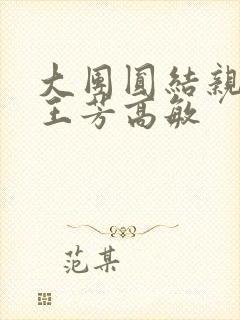 大团圆結親
王芳高敏
范某